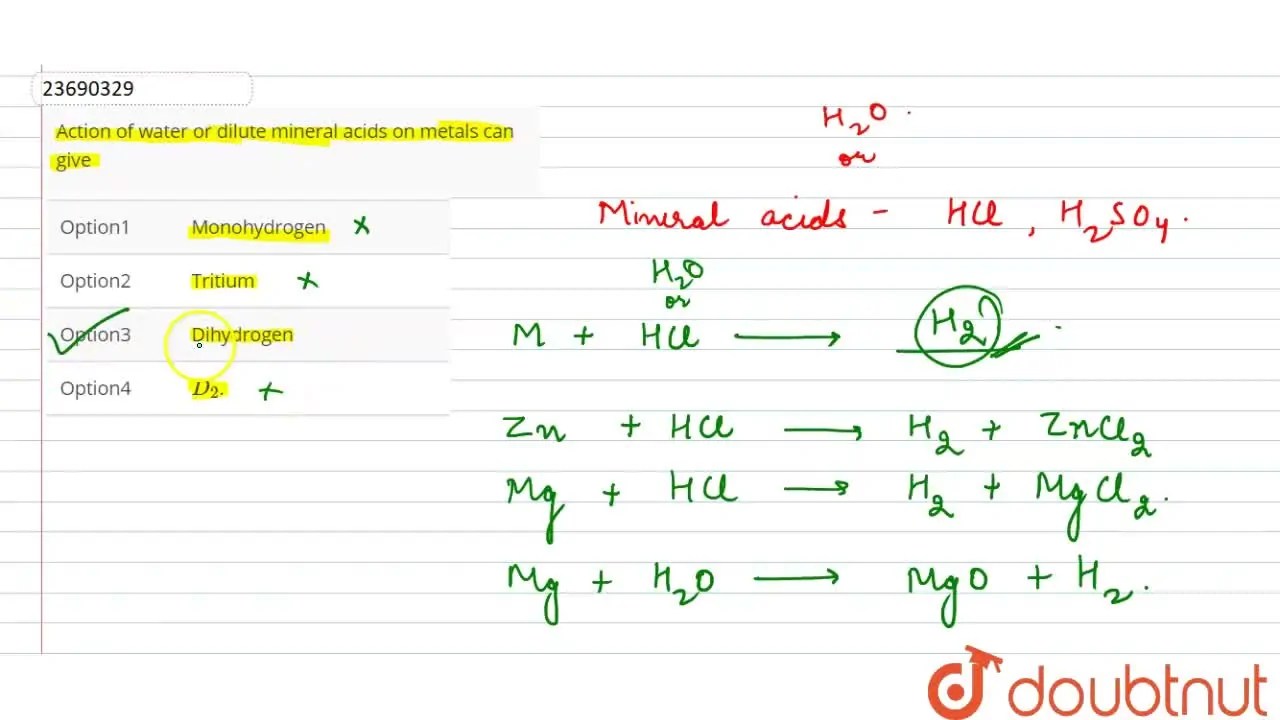 23690329
Action of water or dilute mineral acids on metals can
give
Option1 Monohydrogen ×
Option2 Tritium ×
Option3 Dihydrogen
Option4 D₂. ×
H₂O .
or
Mineral acids - HCl , H₂SO₄.
H₂O
or
M + HCl ⟶ H₂ .
Zn + HCl ⟶ H₂ + ZnCl₂
Mg + HCl ⟶ H₂ + MgCl₂.
Mg + H₂O ⟶ MgO + H₂.
doubtnut